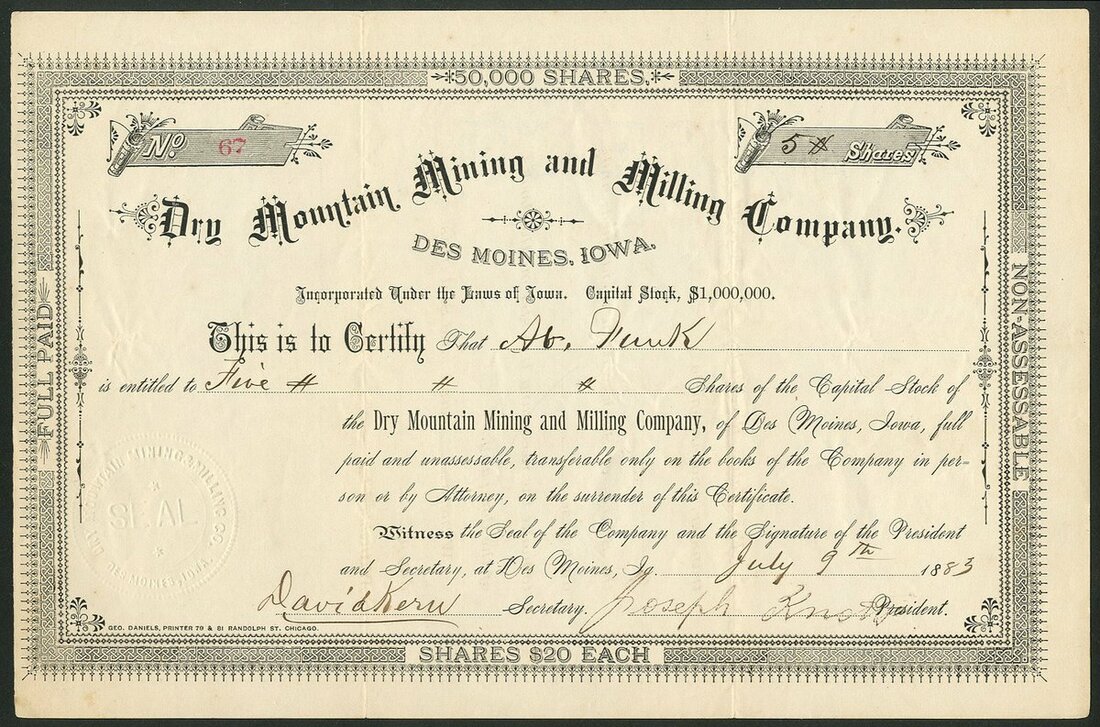 50,000 SHARES.
No. 67
5 # Shares
Dry Mountain Mining and Milling Company.
DES MOINES, IOWA.
Incorporated Under the Laws of Iowa. Capital Stock, $1,000,000.
This is to Certify That Ab. Funk
is entitled to Five # # # Shares of the Capital Stock of
the Dry Mountain Mining and Milling Company, of Des Moines, Iowa, full
paid and unassessable, transferable only on the books of the Company in per-
son or by Attorney, on the surrender of this Certificate.
Witness the Seal of the Company and the Signature of the President
and Secretary, at Des Moines, Ia July 9th 1883
David Kern Secretary. Joseph President.
GEO. DANIELS, PRINTER 79 & 81 RANDOLPH ST. CHICAGO.
SHARES $20 EACH
FULL PAID
NON-ASSESSABLE
DRY MOUNTAIN MINING & MILLING CO.
SEAL
DES MOINES, IOWA.